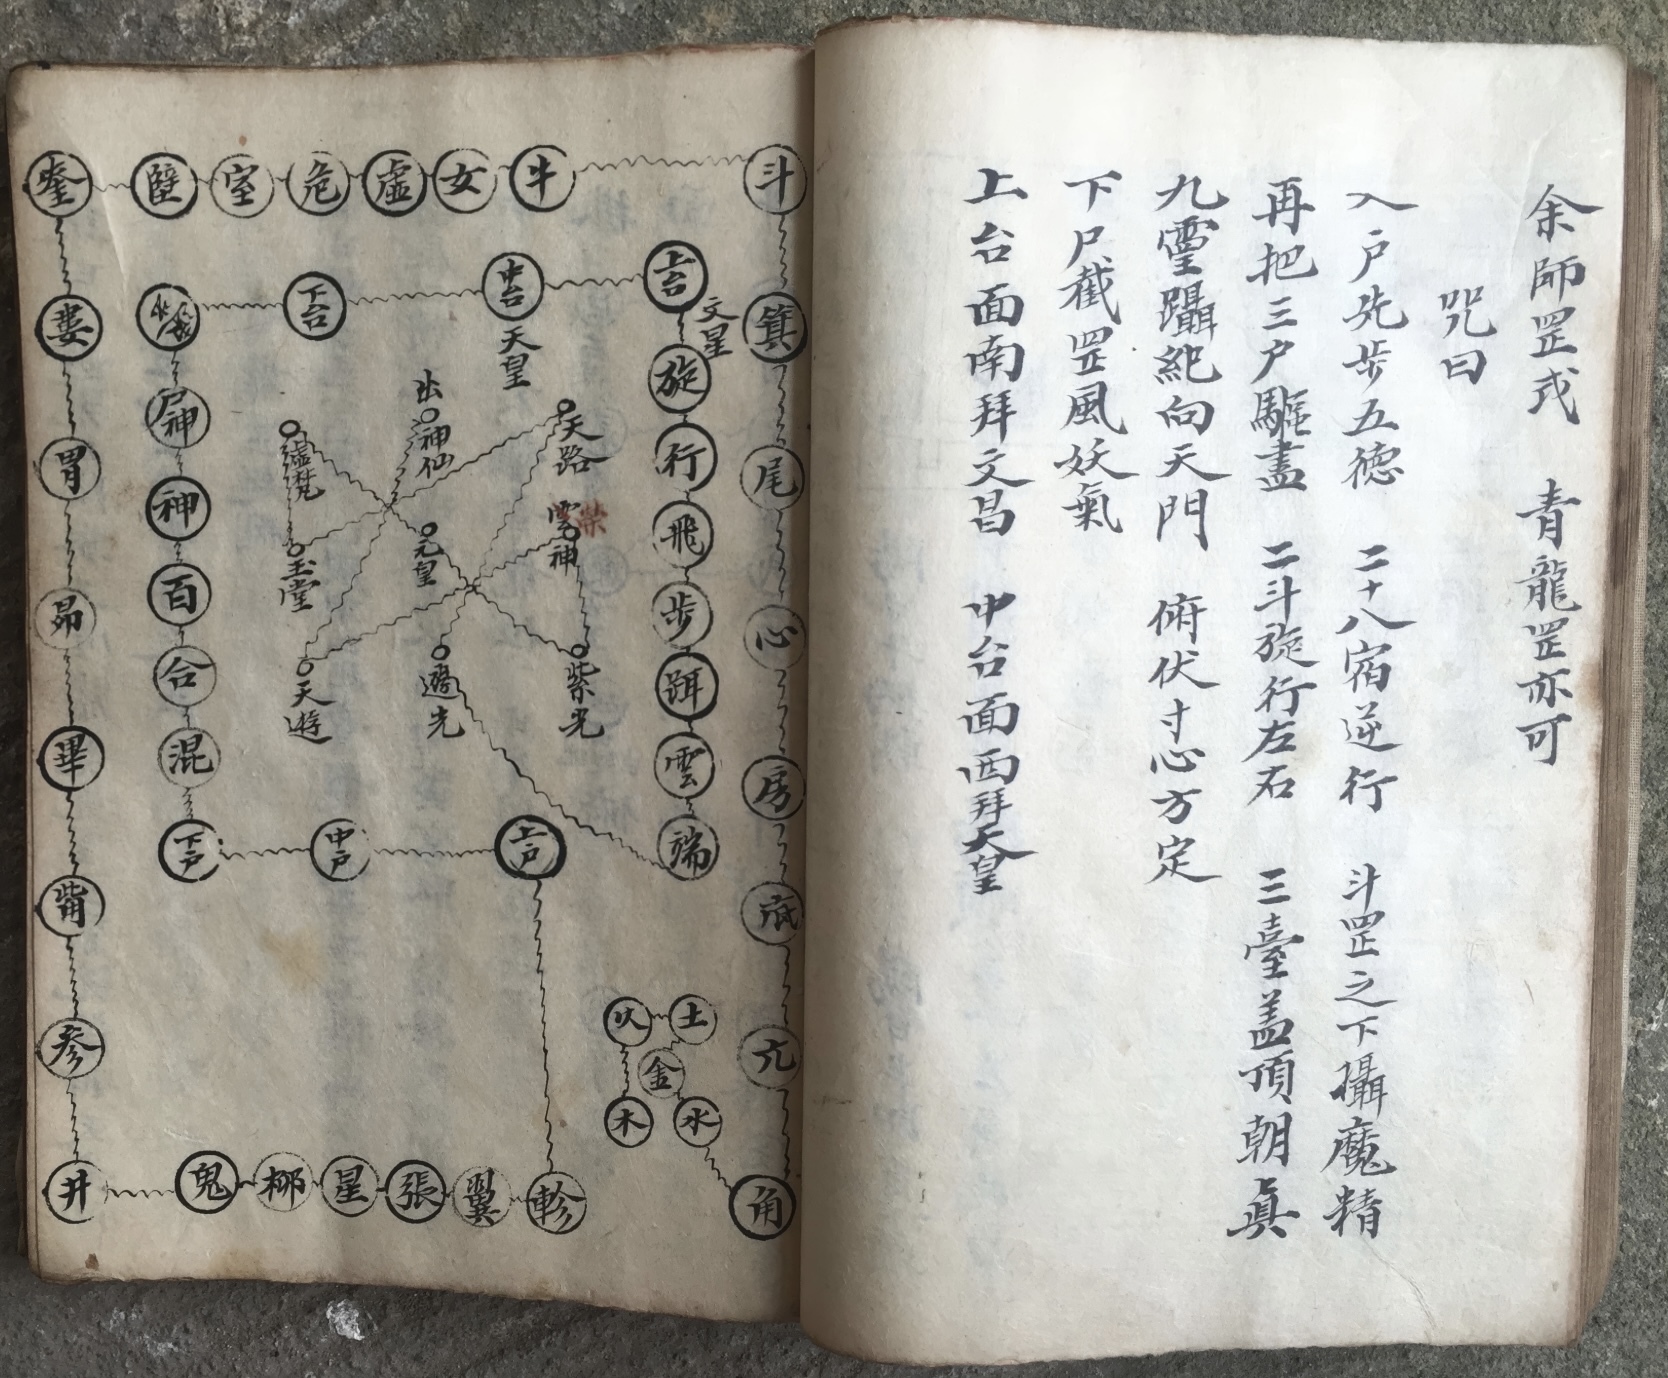 余師罡式　青龍罡亦可
咒曰
入户先步五德　二十八宿逆行　斗罡之下攝魔精
再把三户驅盡　二斗旋行左右　三臺盖頂朝真
九靈躡紀向天門　俯伏寸心方定
下尸截罡風妖氣
上台面南拜文昌　中台面西拜天皇
斗
箕
尾
心
房
底
亢
角
牛
女
虛
危
室
壁
奎
婁
胃
昴
畢
觜
参
井
鬼
柳
星
張
翼
軫
上台
文星
中台
天皇
下台
旋
行
飛
步
躡
雲
端
尸神
神
百
合
混
下户
中户
上户
出
神仙
天路
虛梵
玉堂
元皇
雲神
紫
天遊
紫光
土
火
金
木
水